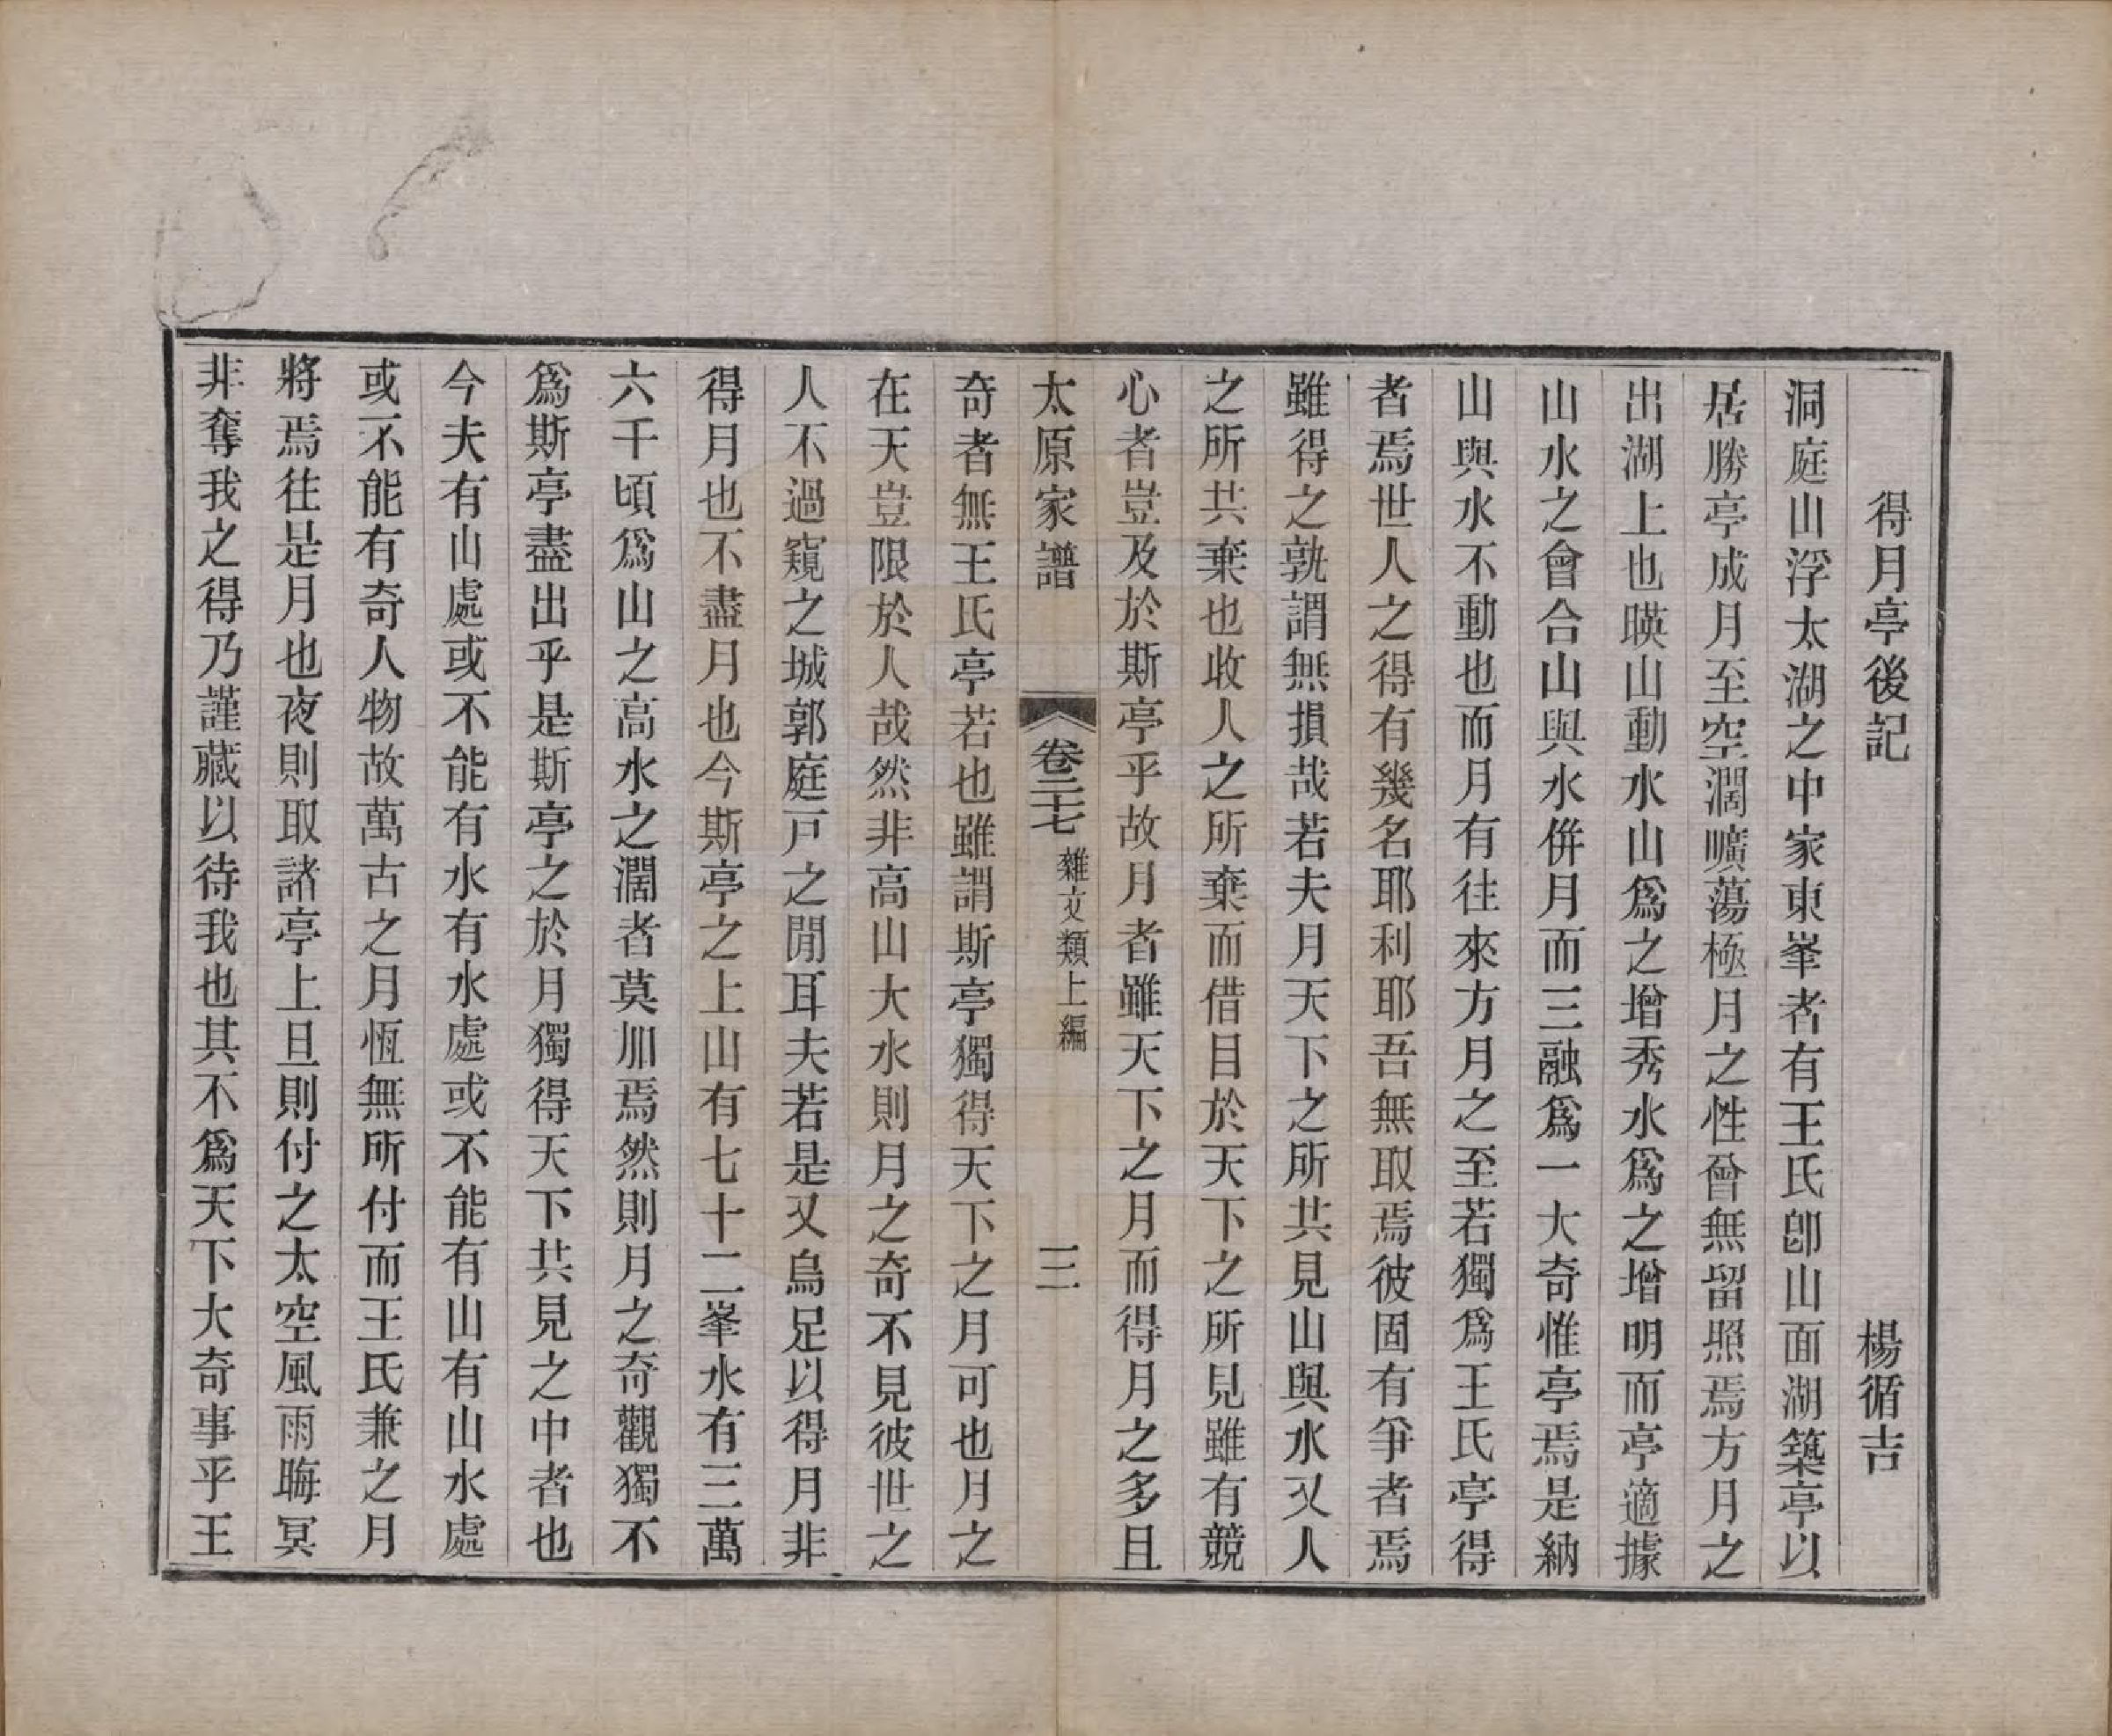 得月亭後記 楊循吉
洞庭山浮太湖之中家東峯者有王氏卽山面湖築亭以
居勝亭成月至空濶曠蕩極月之性曾無留照焉方月之
出湖上也暎山動水山爲之增秀水爲之增明而亭適據
山水之會合山與水併月而三融爲一大奇惟亭焉是納
山與水不動也而月有往來方月之至若獨爲王氏亭得
者焉世人之得有幾名耶利耶吾無取焉彼固有爭者焉
雖得之孰謂無損哉若夫月天下之所共見山與水又人
之所共棄也收人之所棄而借目於天下之所見雖有競
心者豈及於斯亭乎故月者雖天下之月而得月之多且
太原家譜 卷二十七 雜文類上編 三
奇者無王氏亭若也雖謂斯亭獨得天下之月可也月之
在天豈限於人哉然非高山大水則月之奇不見彼世之
人不過窺之城郭庭戸之閒耳夫若是又烏足以得月非
得月也不盡月也今斯亭之上山有七十二峯水有三萬
六千頃爲山之高水之濶者莫加焉然則月之奇觀獨不
爲斯亭盡出乎是斯亭之於月獨得天下共見之中者也
今夫有山處或不能有水有水處或不能有山有山水處
或不能有奇人物故萬古之月恆無所付而王氏兼之月
將焉往是月也夜則取諸亭上旦則付之太空風雨晦冥
非奪我之得乃謹藏以待我也其不爲天下大奇事乎王